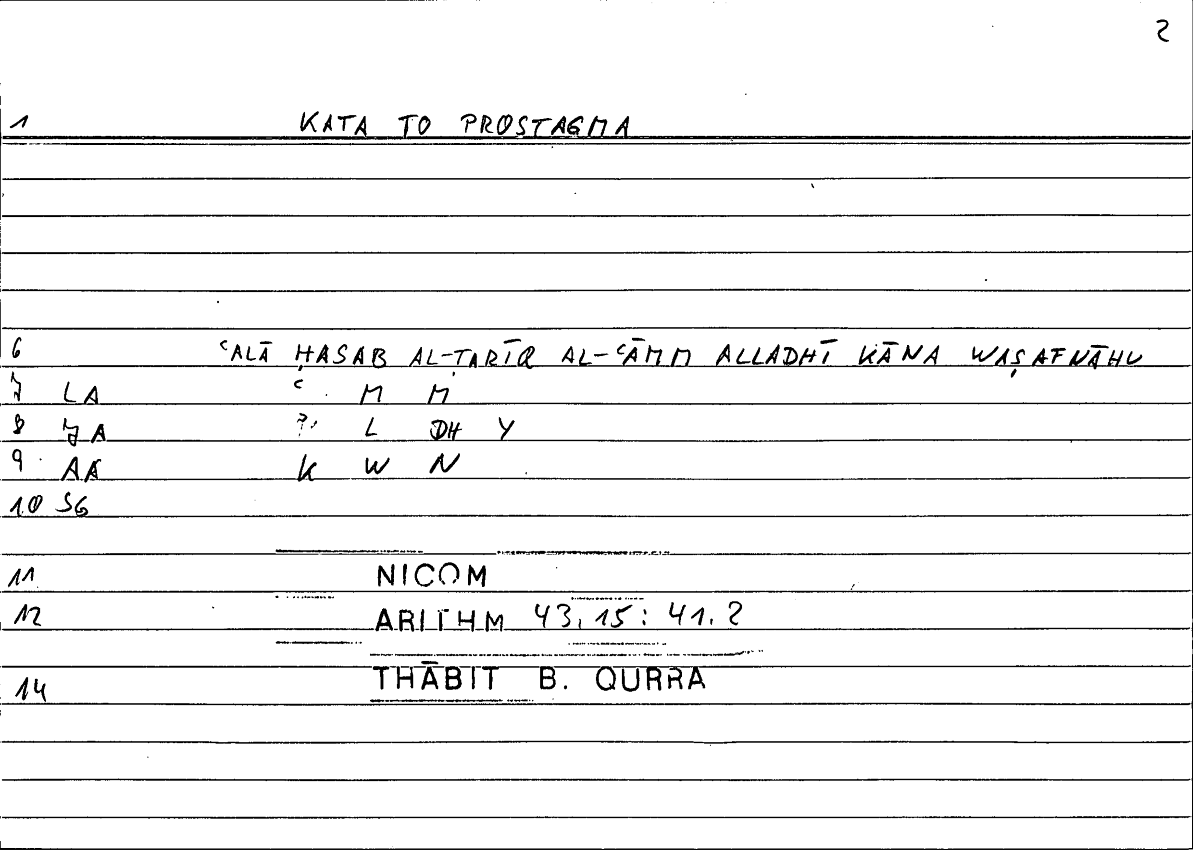 2
1 KATA TO PROSTAGMA
6 ʿALĀ ḤASAB AL-ṬARĪQ AL-ʿĀMM ALLADHĪ KĀNA WAṢAFNĀHU
7 LA ʿ M M
8 JA ? L DH Y
9 AA K W N
10 SG
11 NICOM
12 ARITHM 43,15 : 41.2
14 THĀBIT B. QURRA